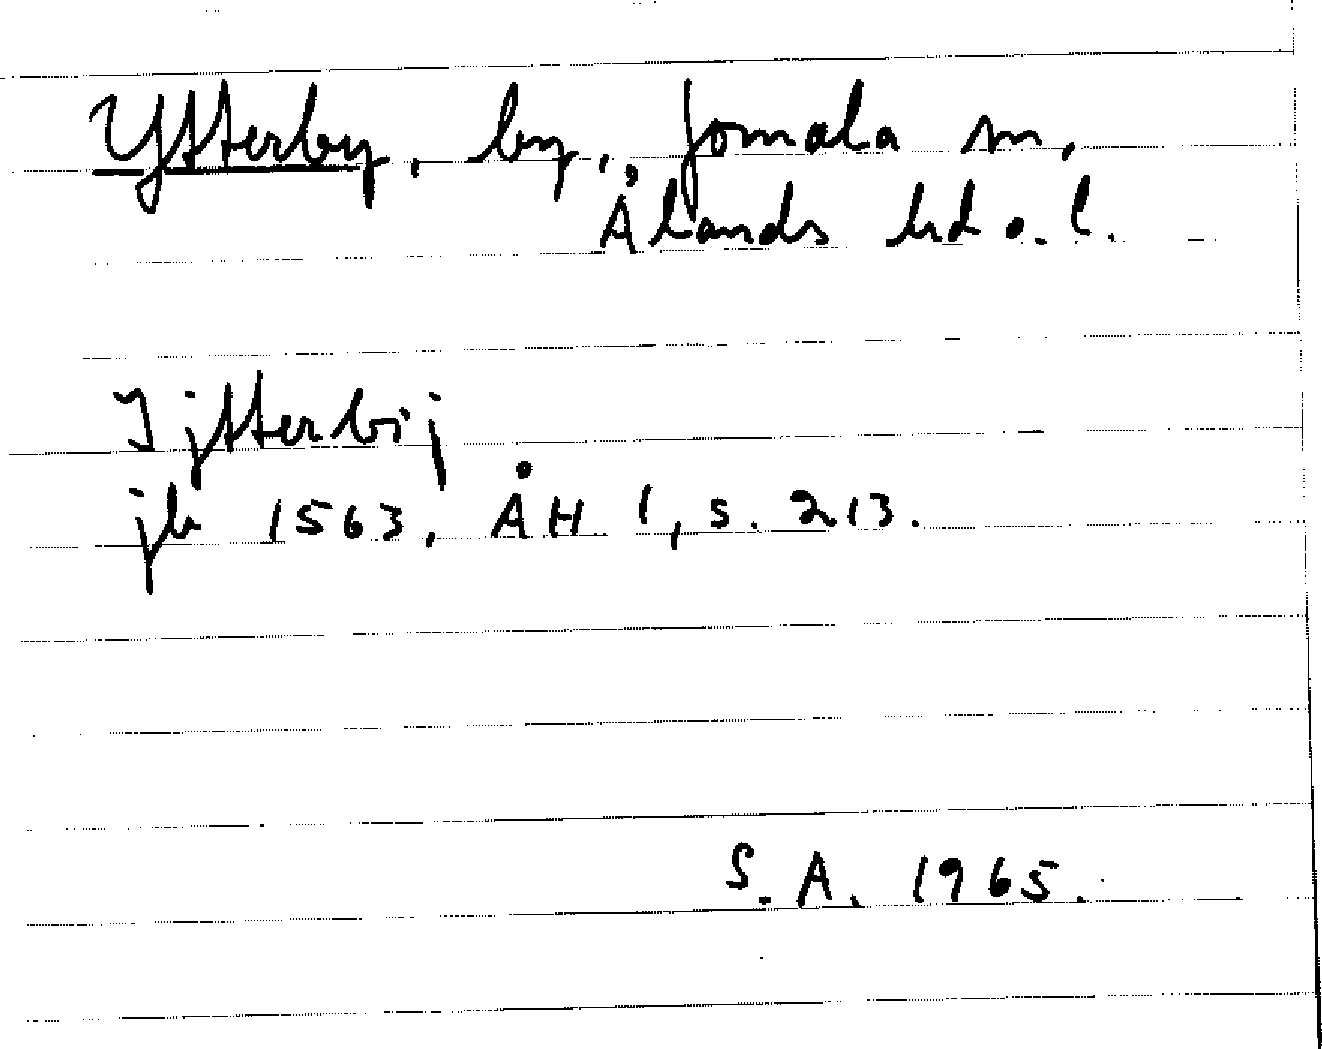 Ytterby, by, Jomala sn,
Ålands hd o. l.
Ijtterbij
jb 1563, ÅH 1, s. 213.
S. A. 1965.